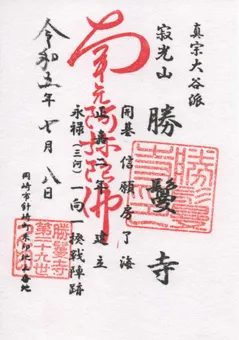 真宗大谷派
寂光山
勝鬘寺
開基 信願房了海
正嘉二年 建立
永禄(三河)一向一揆戦陣跡
南无阿弥陀佛
令和五年七月八日
岡崎市針崎町朱印地三番地
勝鬘寺
第二十九世